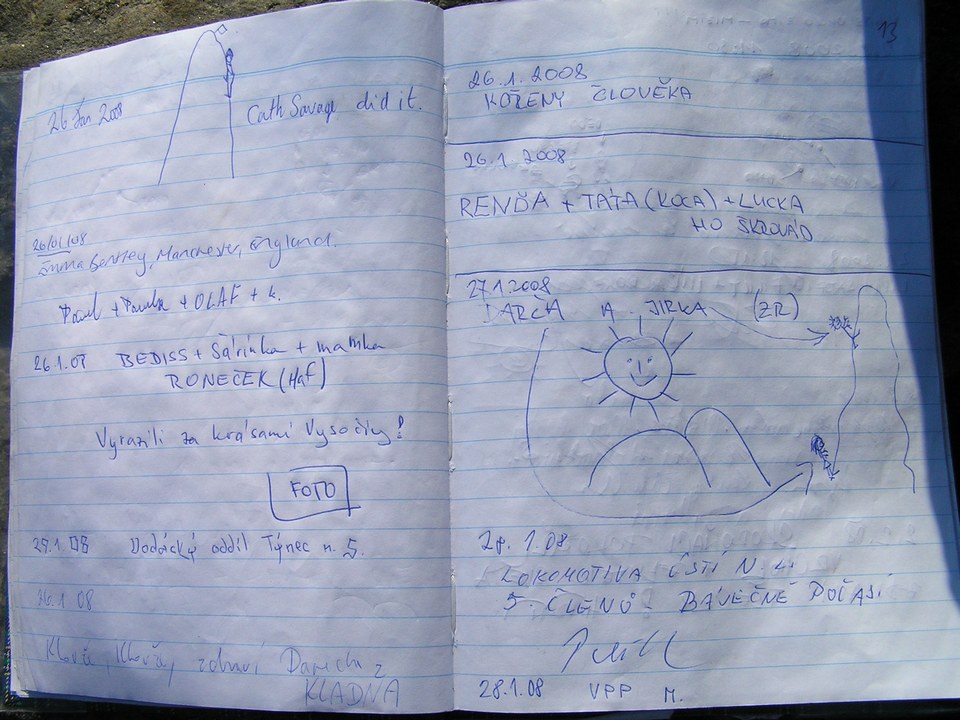 26 Jan 2008
Cath Savage did it.
26/01/08
Emma Bentley, Manchester, England.
Pavel + Pavla + OLAF + k.
26.1.07 BEDISS + Šárinka + mamka
RONEČEK (Haf)
Vyrazili za krásami Vysočiny!
FOTO
Oddíl Týnec n. S.
26.1.08
zdraví z
KLADNA
13
26.1.2008
KOŘENY ČLOVĚKA
26.1.2008
RENĎA + TÁTA (KOCA) + LUCKA
27.1.2008
DARČA A JIRKA (ZR)
28.1.08
LOKOMOTIVA ÚSTÍ N. L.
5. ČLENŮ - BÁJEČNÉ POČASÍ
28.1.08 VPP M.